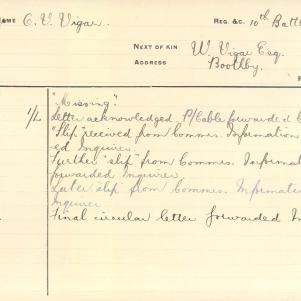 NAME C. V. Vigar. REG. &C. 10th Batt
NEXT OF KIN W. Vigar Esq.
ADDRESS Boothby.
"Missing".
1/L Letter acknowledged. P/Cable forwarded
"Slip" received from Commrs. Information
ed Inquirer.
Further "slip" from Commrs. Informat
forwarded Inquirer
Later slip from Commrs. Informatio
Inquirer
Final circular letter forwarded In